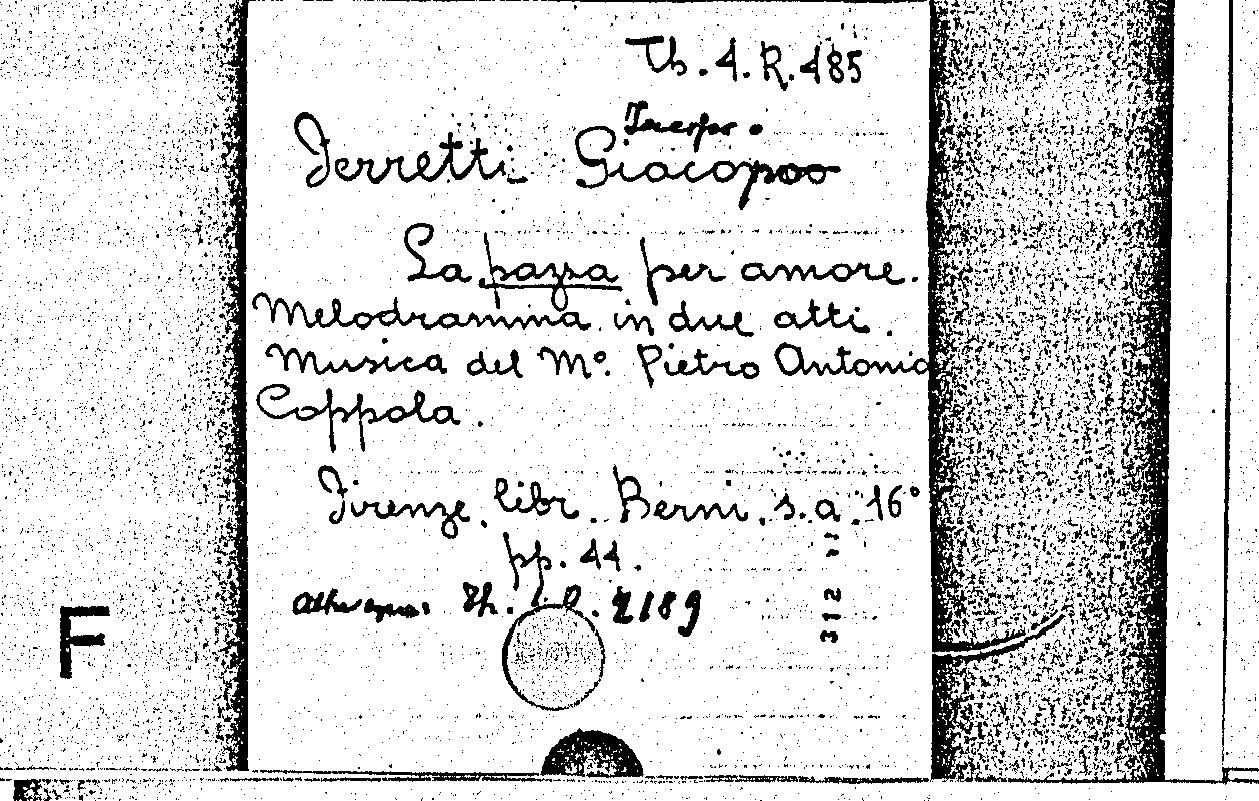 Th. 1. R. 485
Jacopo
Ferretti Giacopoo
La pazza per amore.
Melodramma in due atti.
Musica del Mº. Pietro Antonio
Coppola.
Firenze, libr. Berni, s.a. 16°
pp. 44.
Th. 2189
312
F